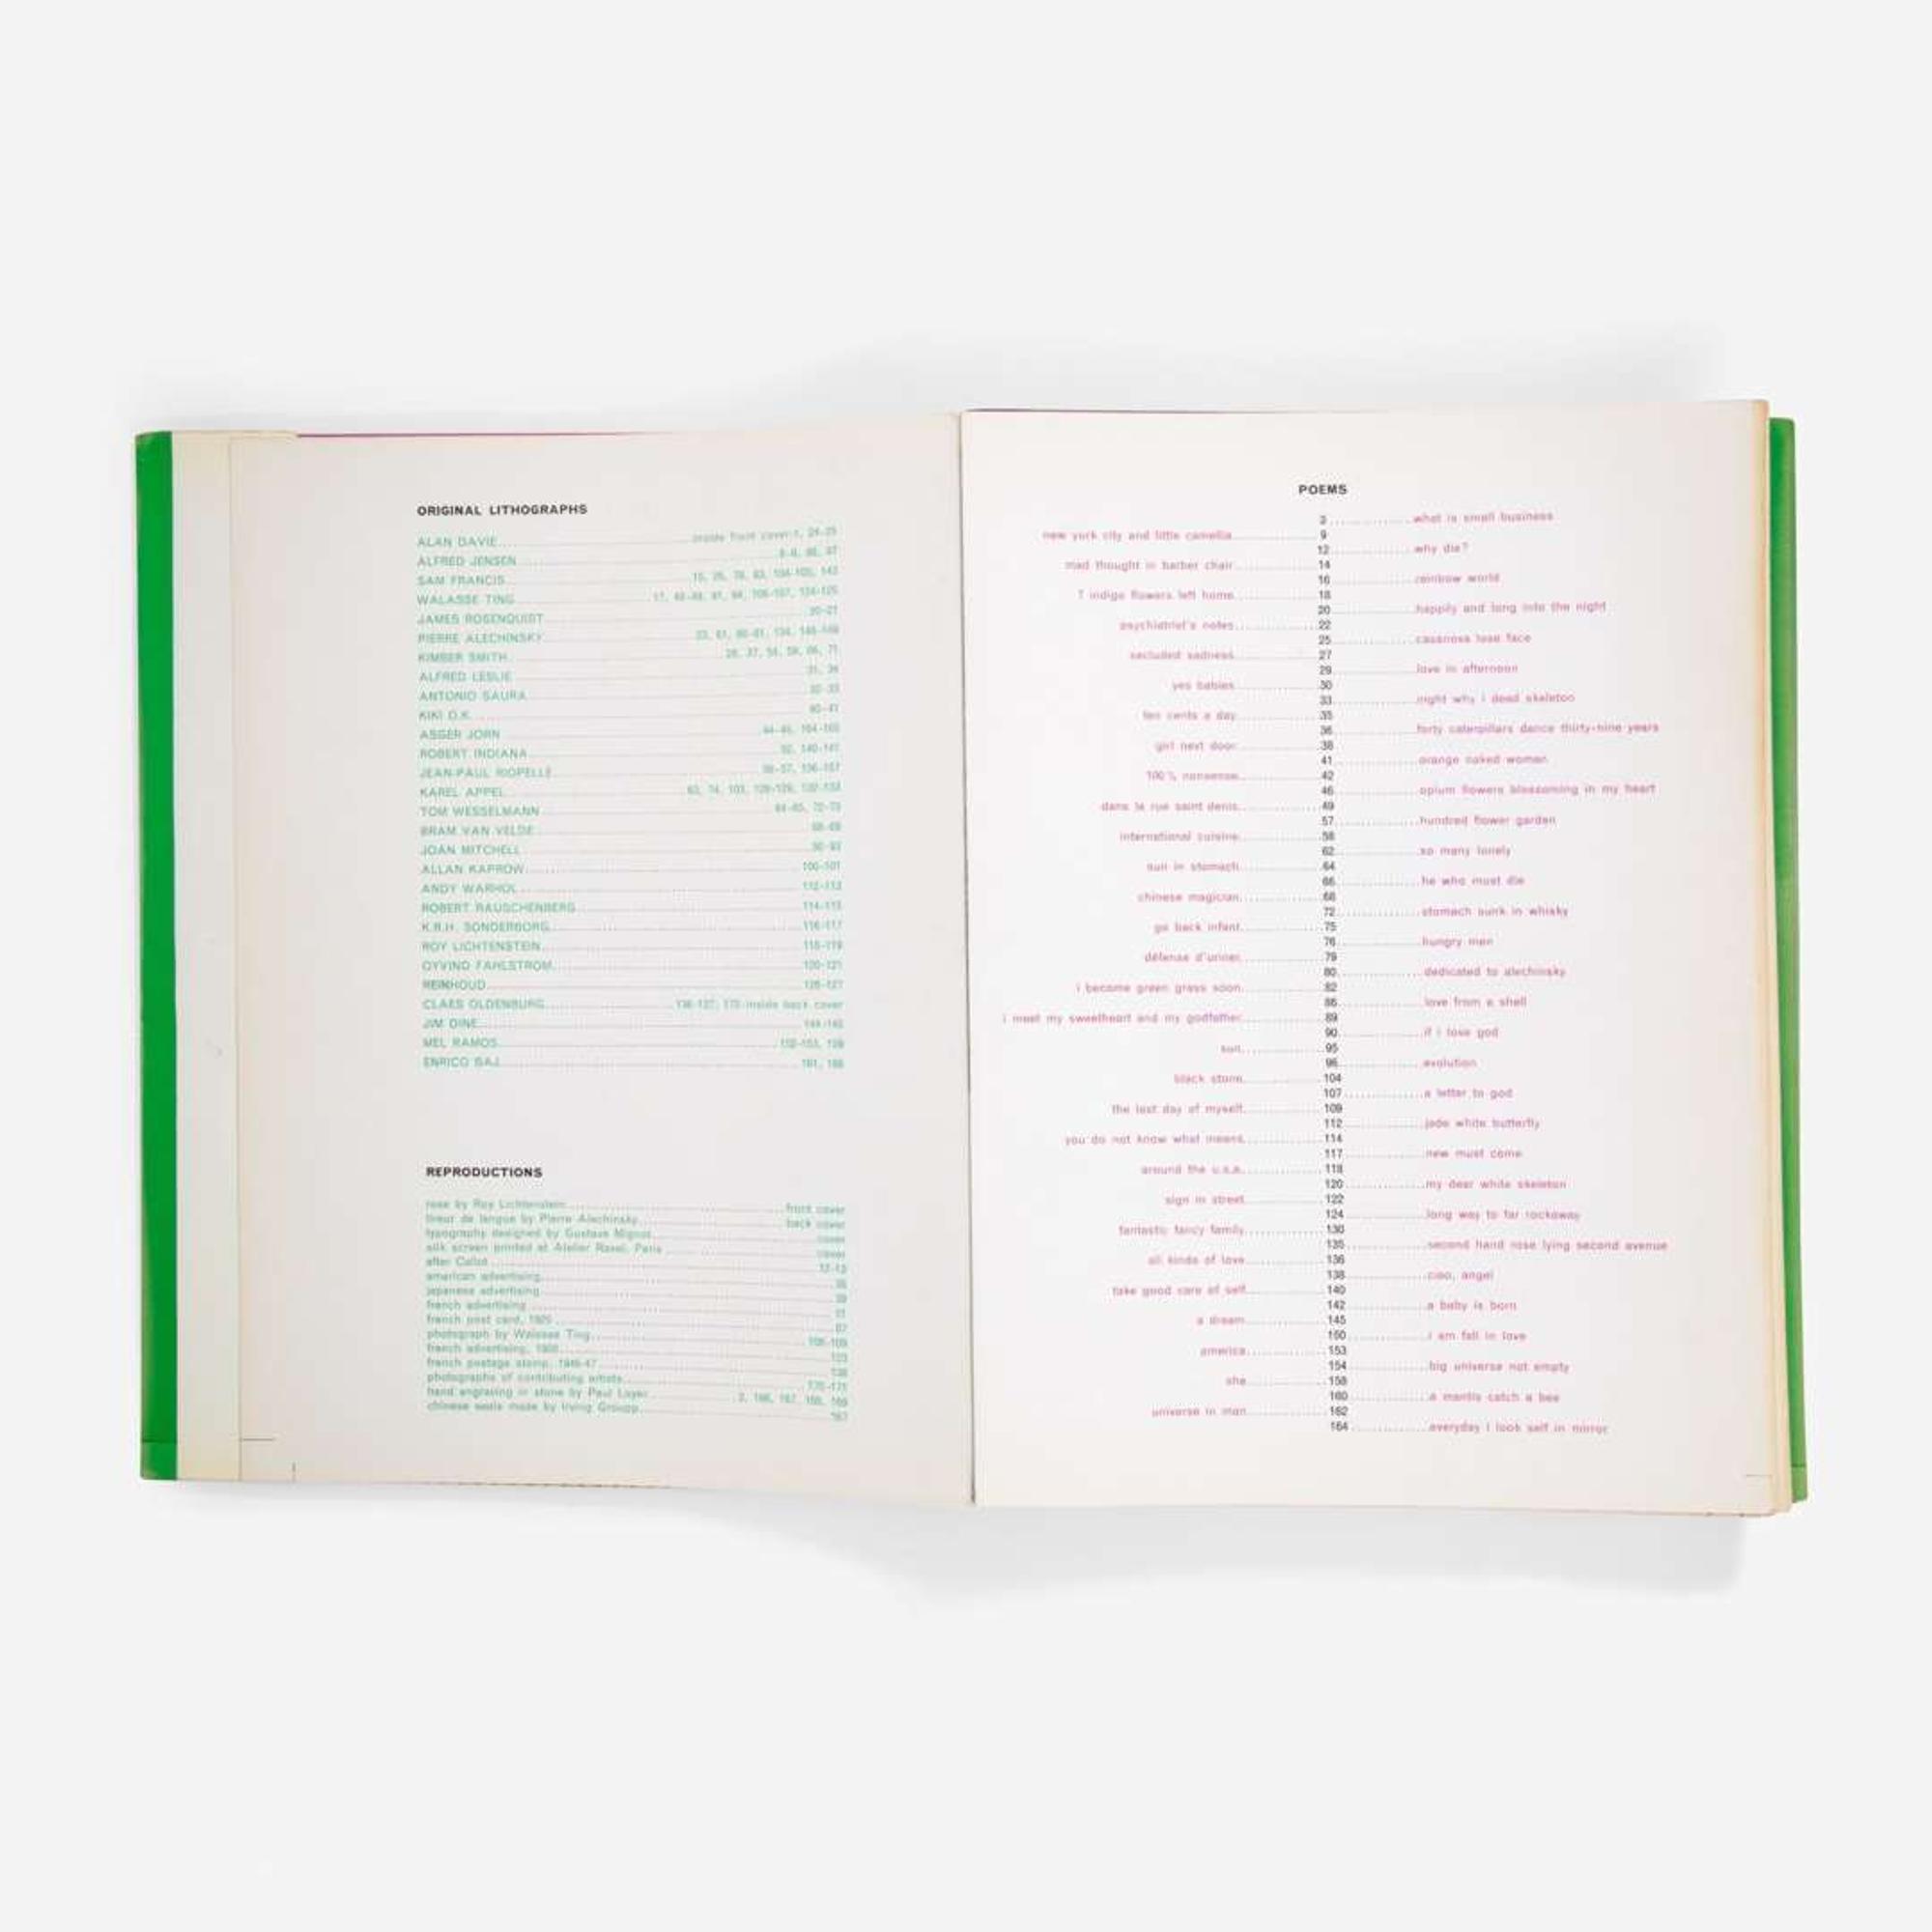 ORIGINAL LITHOGRAPHS
ALAN DAVIE inside front cover-1, 24-25
ALFRED JENSEN
SAM FRANCIS
WALASSE TING
JAMES ROSENQUIST
PIERRE ALECHINSKY
KIMBER SMITH
ALFRED LESLIE
ANTONIO SAURA
KIKI O.K.
ASGER JORN
ROBERT INDIANA
JEAN-PAUL RIOPELLE
KAREL APPEL
TOM WESSELMANN
BRAM VAN VELDE
JOAN MITCHELL
ALLAN KAPROW 100-101
ANDY WARHOL 112-113
ROBERT RAUSCHENBERG 114-115
K.R.H. SONDERBORG 116-117
ROY LICHTENSTEIN 118-119
OYVIND FAHLSTROM 120-121
REINHOUD 126-127
CLAES OLDENBURG inside back cover
JIM DINE
MEL RAMOS
ENRICO BAJ
REPRODUCTIONS
rose by Roy Lichtenstein front cover
tireur de langue by Pierre Alechinsky back cover
typography designed by Gustave Mignot cover
silk screen printed at Atelier Rasel, Paris cover
after Callot 12-13
american advertising
japanese advertising
french advertising
french post card, 1925
photograph by Walasse Ting 108-109
french advertising, 1900
french postage stamp, 1946-47
photographs of contributing artists 170-171
hand engraving in stone by Paul Loyer
chinese seals made by Irving Groupp
POEMS
3 what is small business
new york city and little camellia 9
12 why die?
mad thought in barber chair 14
16 rainbow world
7 indigo flowers left home 18
20 happily and long into the night
psychiatrist's notes 22
25 casanova lose face
secluded sadness 27
29 love in afternoon
yes babies 30
33 night why i dead skeleton
ten cents a day 35
36 forty caterpillars dance thirty-nine years
girl next door 38
41 orange naked women
100% nonsense 42
46 opium flowers blossoming in my heart
dans la rue saint denis 49
57 hundred flower garden
international cuisine 58
62 so many lonely
sun in stomach 64
66 he who must die
chinese magician 68
72 stomach sunk in whisky
go back infant 75
76 hungry man
défense d'uriner 79
80 dedicated to alechinsky
i become green grass soon 82
86 love from a shell
i meet my sweetheart and my godfather 89
90 if i lose god
95
96 evolution
black stone 104
107 a letter to god
the last day of myself 109
112 jade white butterfly
you do not know what means 114
117 new must come
around the u.s.a. 118
120 my dear white skeleton
sign in street 122
124 long way to far rockaway
fantastic fancy family 130
135 second hand rose lying second avenue
all kinds of love 136
138 ciao, angel
take good care of self 140
142 a baby is born
a dream 145
150 i am fall in love
america 153
154 big universe not empty
she 158
160 a mantis catch a bee
universe in man 162
164 everyday i look self in mirror